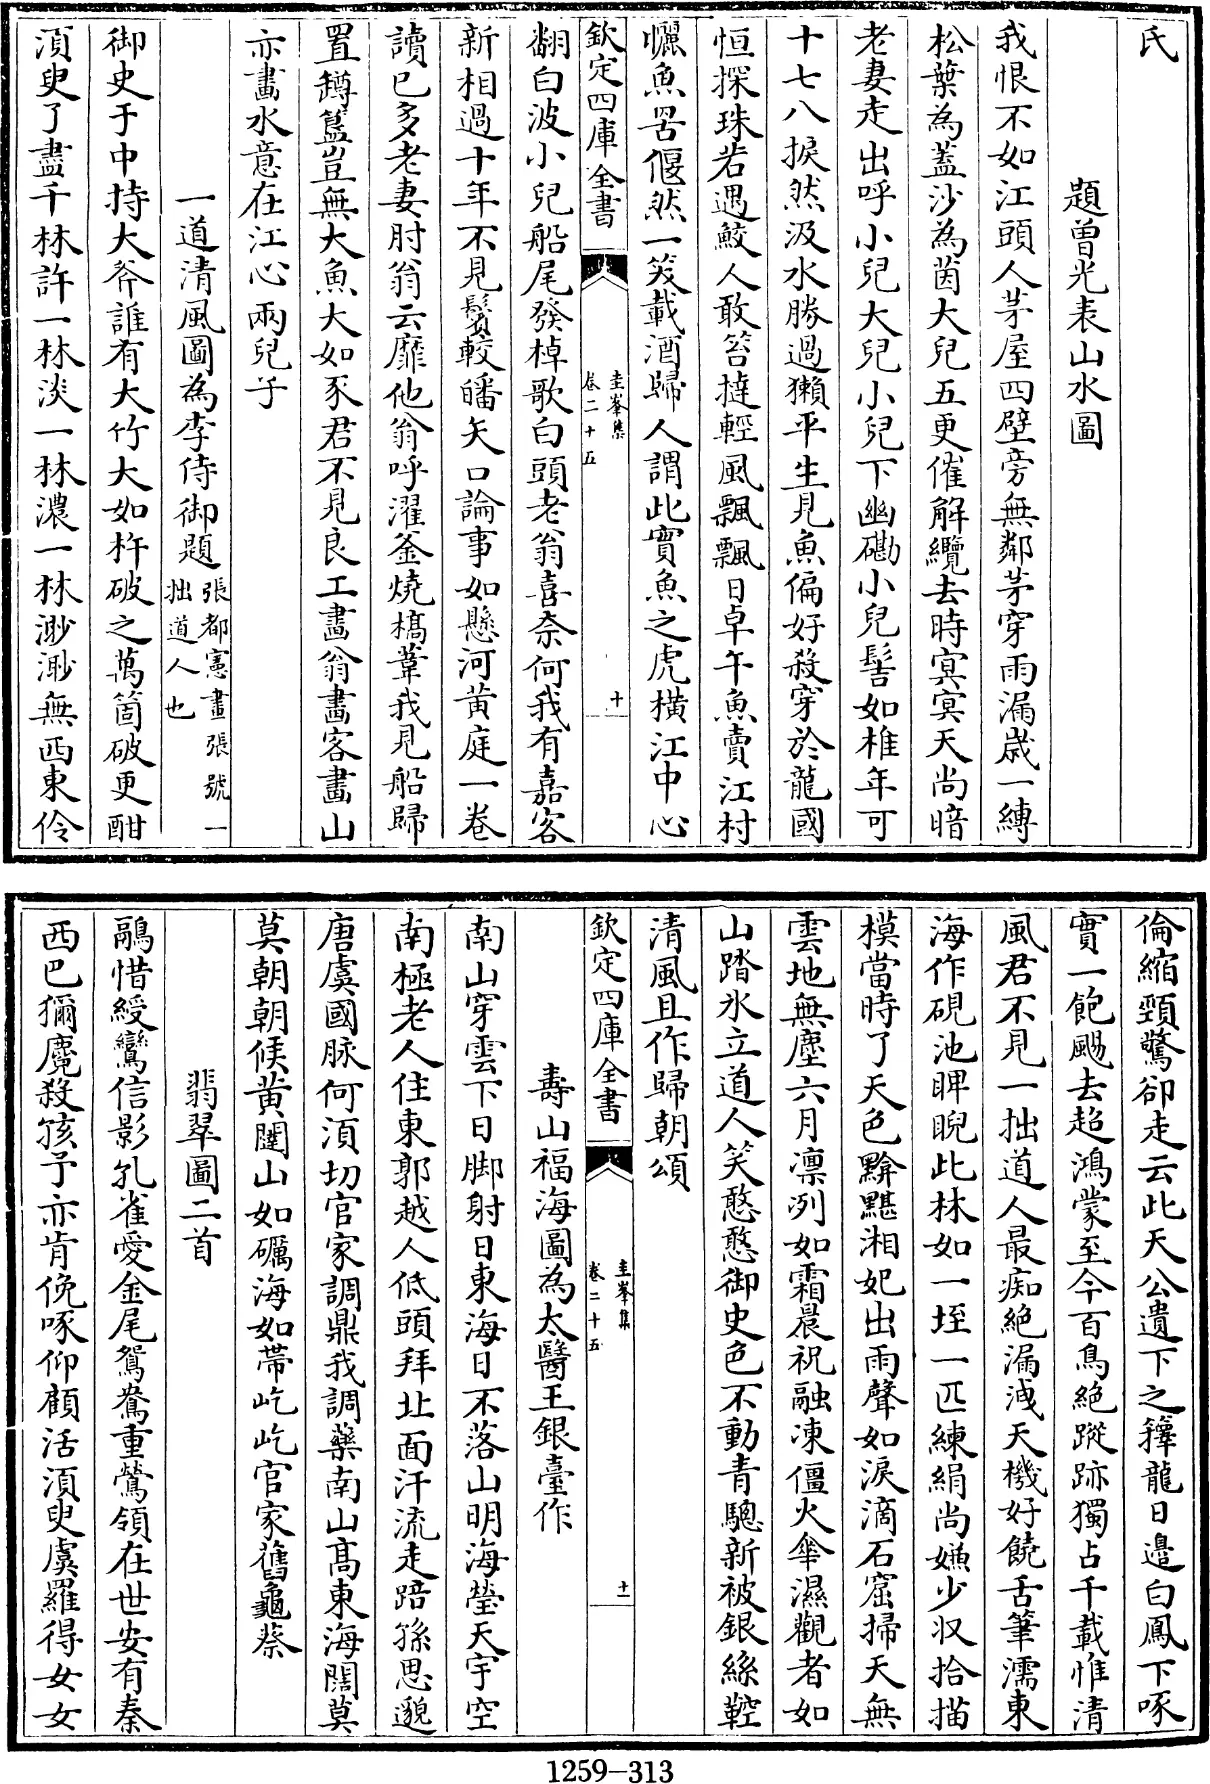 氏
題曾光表山水圖
我恨不如江頭人茅屋四壁旁無鄰茅穿雨漏歲一縛
松葉為蓋沙為茵大兒五更催解纜去時冥冥天尚暗
老妻走出呼小兒大兒小兒下幽磡小兒髻如椎年可
十七八捩然汲水勝過獺平生見魚偏好殺穿於龍國
恒探珠若遇鮫人敢笞撻輕風飄飄日卓午魚賣江村
㬠魚罟偃然一笑載酒歸人謂此實魚之虎橫江中心
欽定四庫全書
圭峯集
卷二十五
十
翻白波小兒船尾發棹歌白頭老翁喜奈何我有嘉客
新相過十年不見鬢較皤矢口論事如懸河黃庭一卷
讀已多老妻肘翁云靡他翁呼濯釜燒槁葦我見船歸
置罇簋豈無大魚大如豕君不見良工畫翁畫客畫山
亦畫水意在江心兩兒子
一道清風圖為李侍御題張都憲畫張號一
拙道人也
御史于中持大斧誰有大竹大如杵破之萬箇破更酣
湏臾了盡千林許一林淡一林濃一林渺渺無西東伶
倫縮頸驚卻走云此天公遺下之籜龍日邉白鳳下啄
實一飽颺去超鴻蒙至今百鳥絶蹤跡獨占千載惟清
風君不見一拙道人最痴絶漏洩天機好饒舌筆濡東
海作硯池睥睨此林如一垤一匹練絹尚嫌少収拾描
模當時了天色黭黮湘妃出雨聲如淚滴石窟掃天無
雲地無塵六月凛冽如霜晨祝融凍僵火傘濕觀者如
山踏氷立道人笑憨憨御史色不動青驄新被銀絲鞚
清風且作歸朝頌
欽定四庫全書
圭峯集
卷二十五
十一
壽山福海圖為太醫王銀臺作
南山穿雲下日脚射日東海日不落山明海瑩天宇空
南極老人住東郭越人低頭拜北面汗流走踣孫思邈
唐虞國脉何湏切官家調鼎我調藥南山髙東海闊莫
莫朝朝候黄闥山如礪海如帶屹屹官家舊龜蔡
翡翠圖二首
鷸惜綬鸞信影孔雀愛金尾鴛鴦重鶯領在世安有秦
西巴獮麑殺孩予亦肯俛啄仰顧活湏臾虞羅得女女